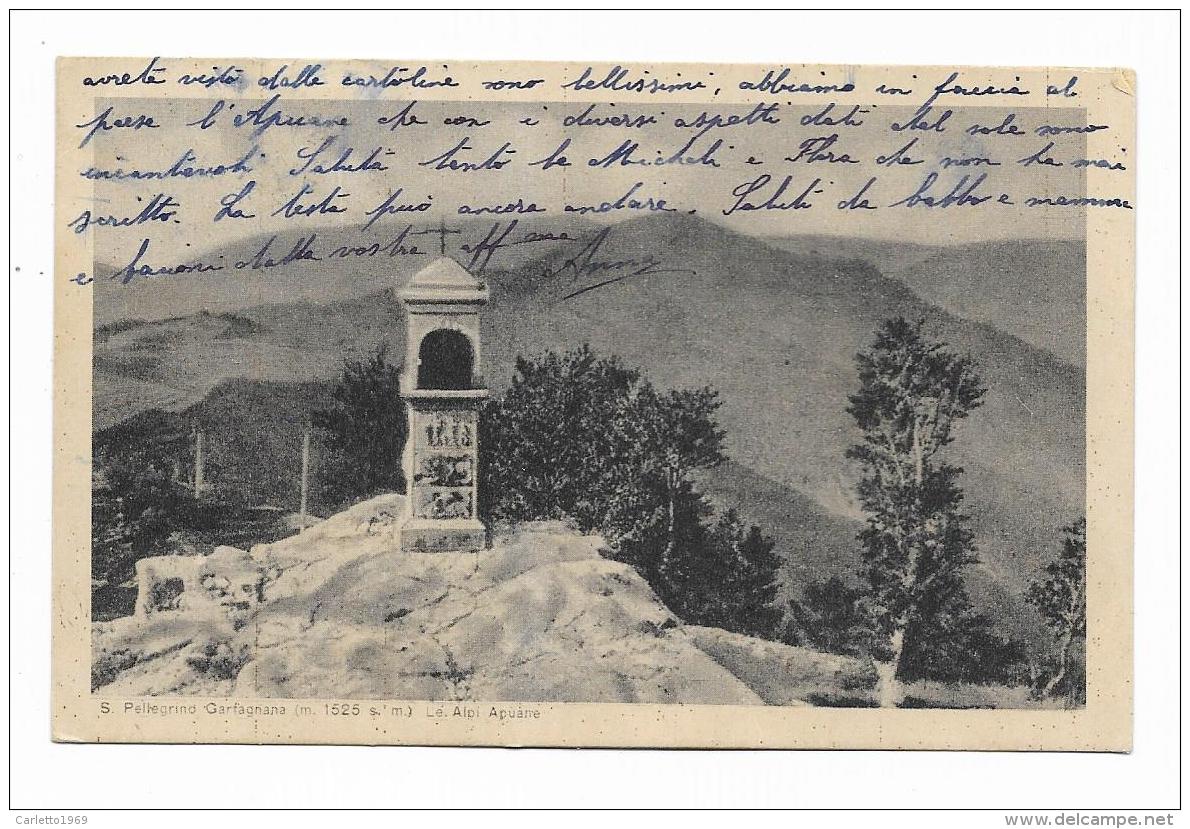 avrete visto dalle cartoline sono bellissimi, abbiamo in faccia al
paese l'Apuane che con i diversi aspetti dati dal sole sono
incantevoli Saluta tento le Micheli e Flora che non ha mai
scritto. La testa può ancora andare. Saluti da babbo e mamma
e bacioni dalla vostra aff ma Anna
S. Pellegrino Garfagnana (m. 1525 s. m.) Le Alpi Apuane
Carletto1969
www.delcampe.net